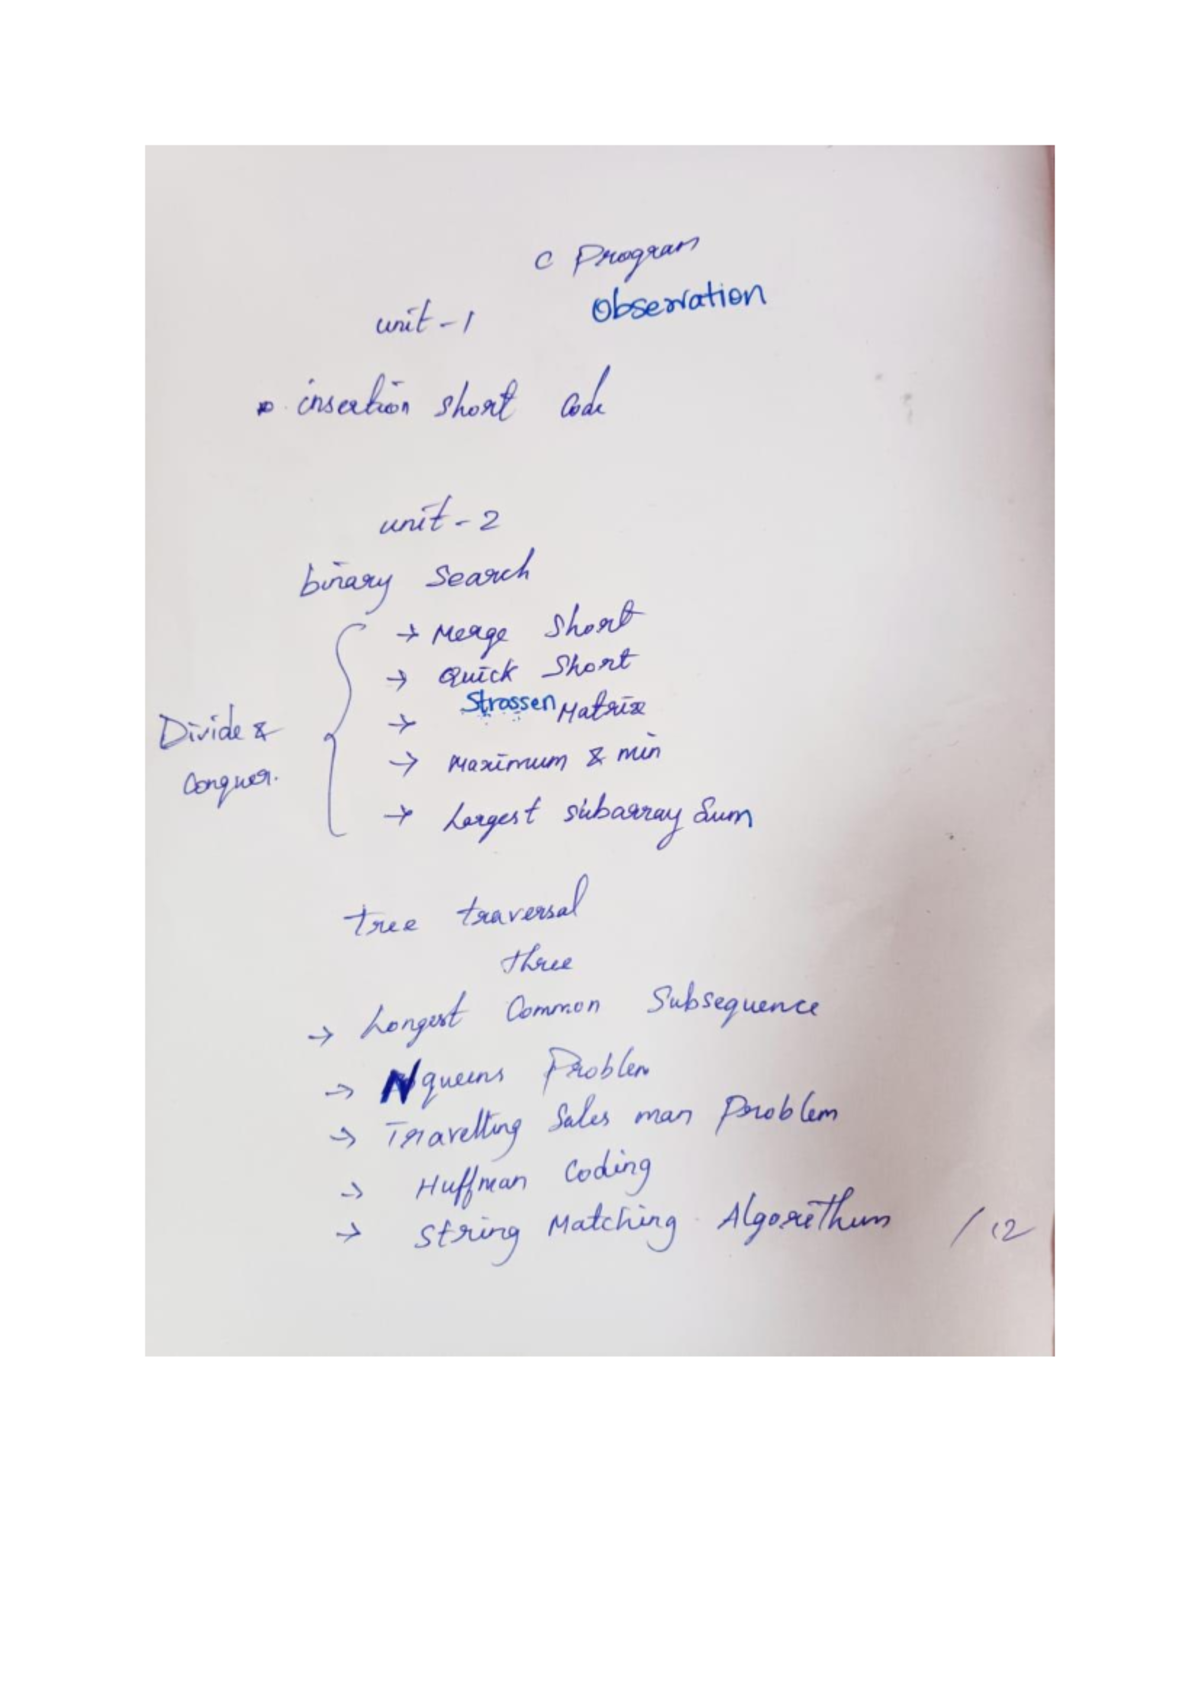 C Program
Observation
unit - 1
insertion short Code
unit - 2
binary Search
→ Merge Short
→ Quick Short
→ Strassen Matrix
Divide &
Conquer.
→ Maximum & min
→ Largest subarray Sum
tree traversal
three
→ Longest Common Subsequence
→ N queens Problem
→ Travelling Sales man Problem
→ Huffman Coding
→ String Matching Algorithum / 12